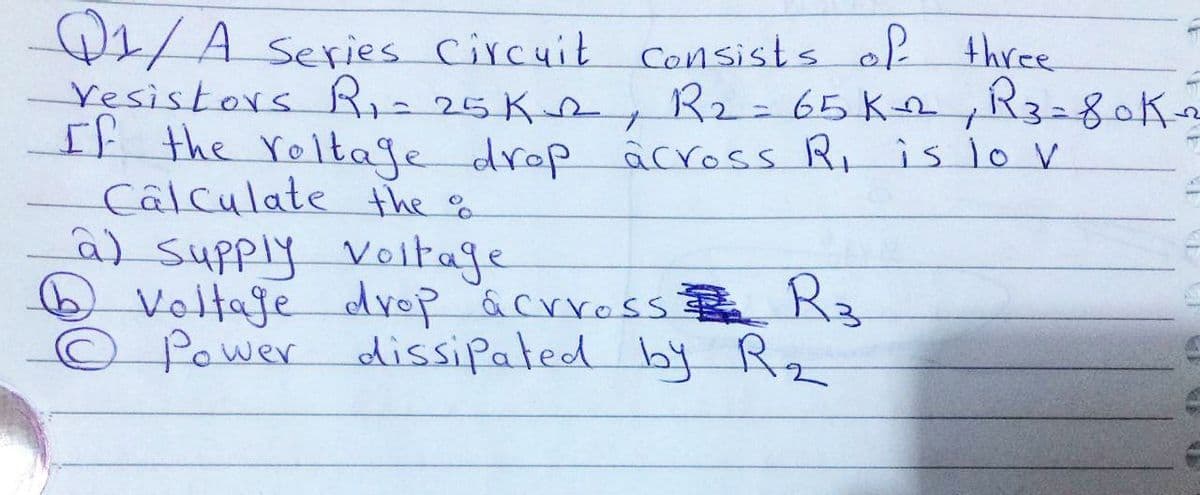 Q1/A Series Circuit Consists of three
resistors R₁=25KΩ, R₂=65KΩ, R₃=80KΩ
If the voltage drop across R₁ is 10 V
Calculate the :
a) supply voltage
ⓑ voltage drop acrross R₃
ⓒ Power dissipated by R₂